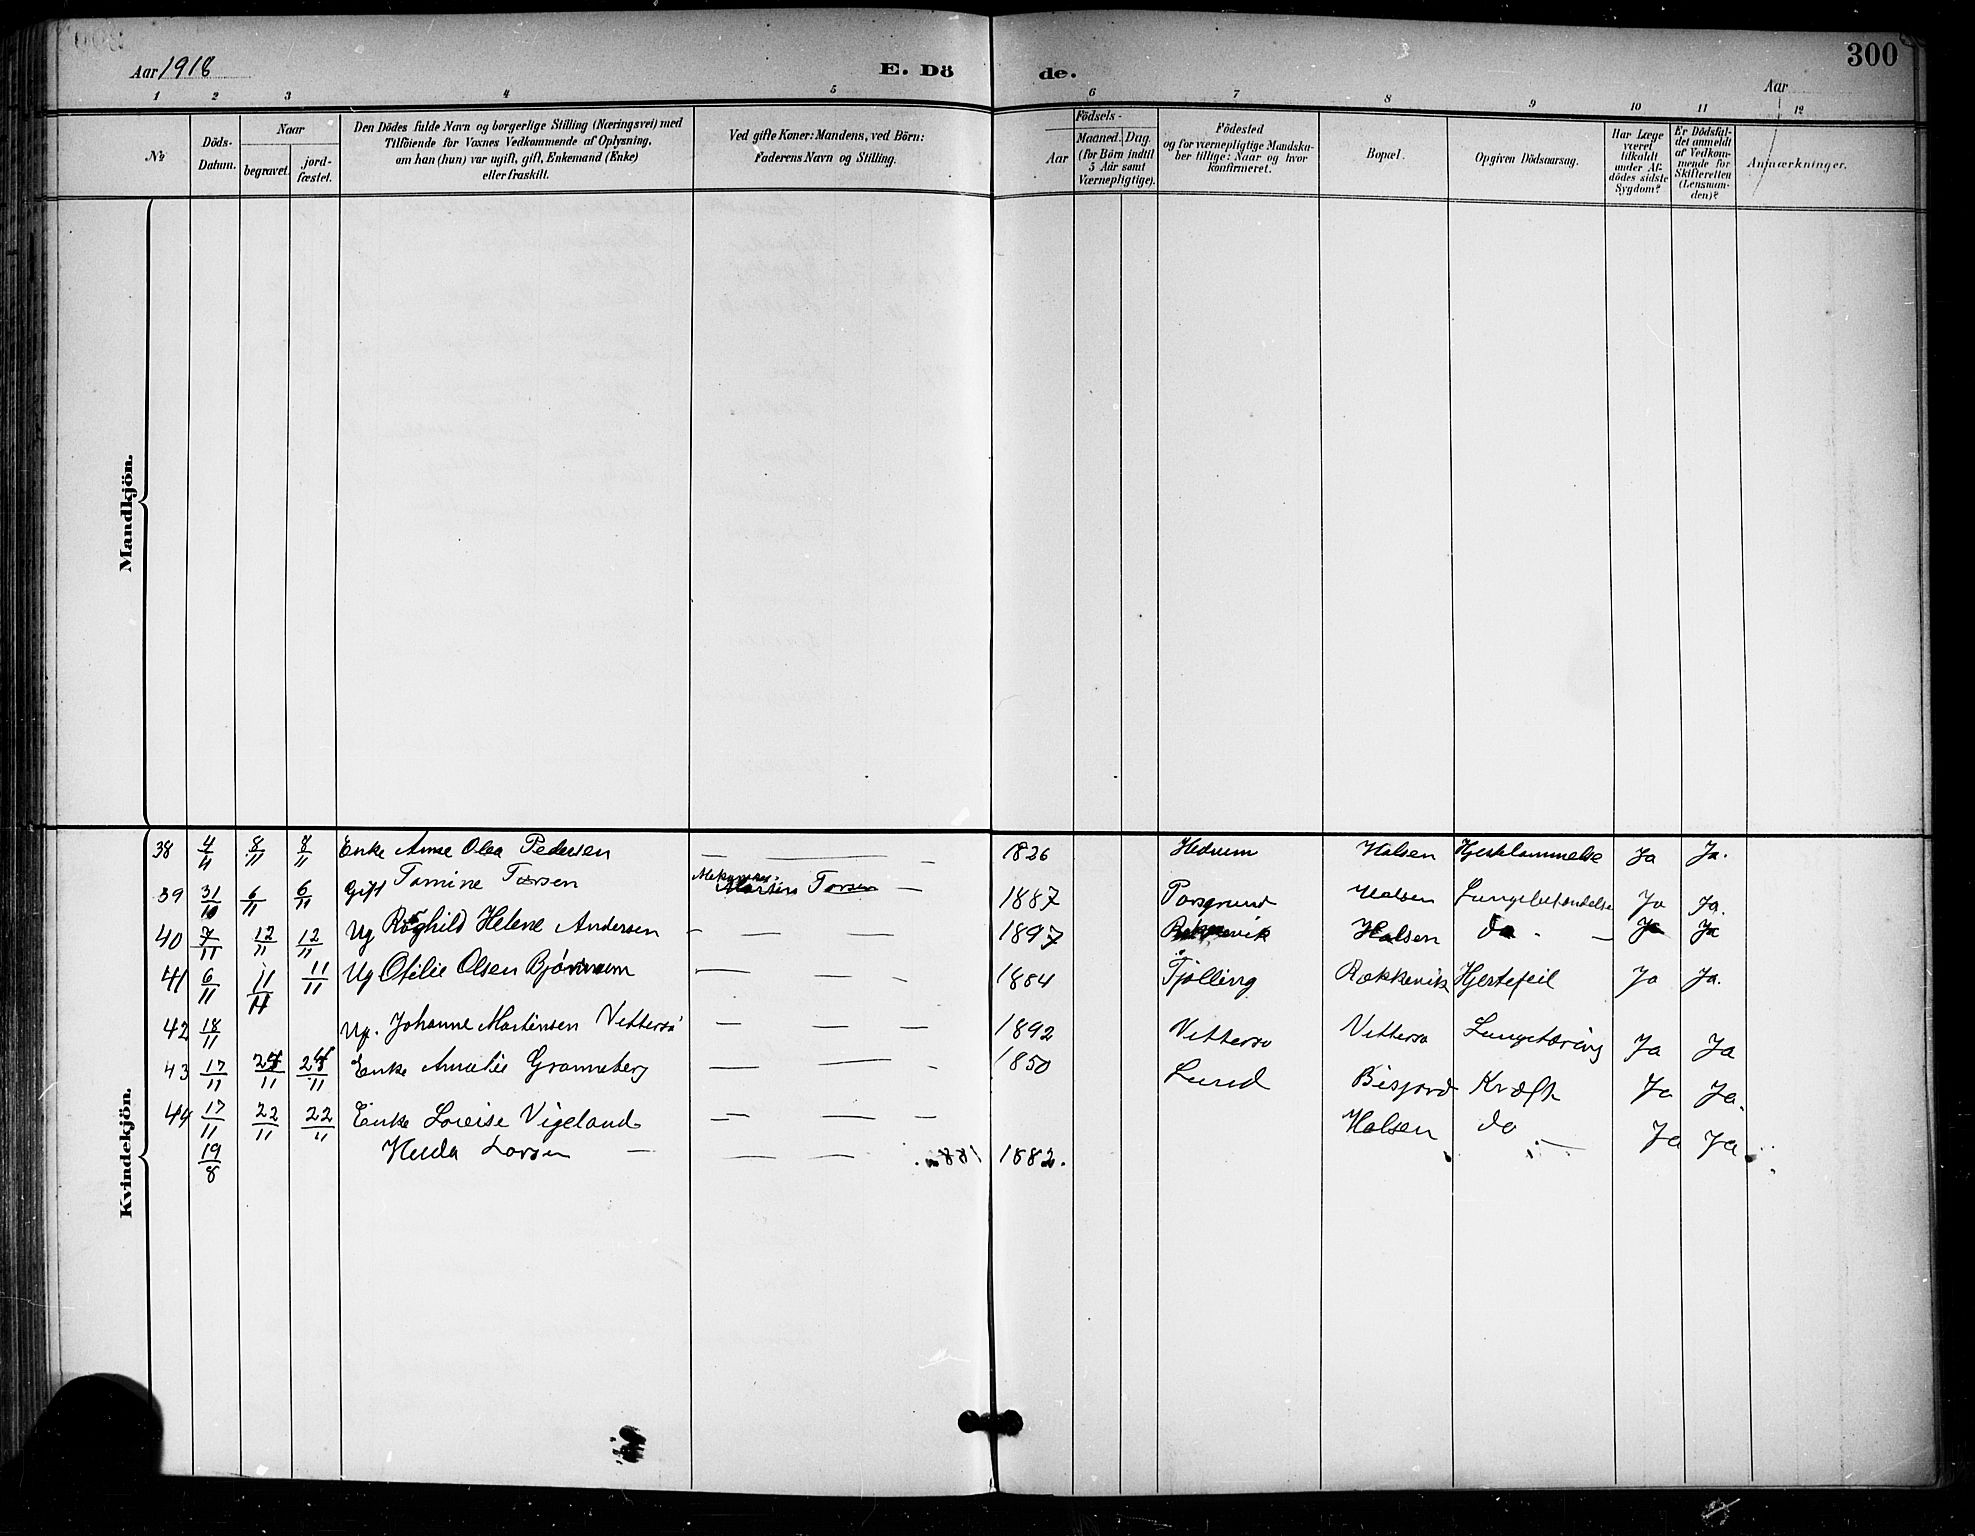 Aar 1918
E. Dö de.
Aar
300
1 2 3 4 5 6 7 8 9 10 11 12
No
Döds-Datum.
Naar
begravet.
jord-fæstet.
Den Dödes fulde Navn og borgerlige Stilling (Næringsvei) med
Tilföiende for Voxnes Vedkommende af Oplysning,
om han (hun) var ugift, gift, Enkemand (Enke)
eller fraskilt.
Ved gifte Koner: Mandens, ved Börn:
Faderens Navn og Stilling.
Födsels-
Aar
Maaned. Dag.
(for Börn indtil
5 Aar samt
Værnepligtige).
Födested
og for værnepligtige Mandska-
ber tillige: Naar og hvor
konfirmeret.
Bopæl.
Opgiven Dödsaarsag.
Har Læge
været
tilkaldt
under Af-
dödes sidste
Sygdom?
Er Dödsfal-
det anmeldt
af Vedkom-
mende for
Skifteretten
(Lensman-
den)?
Anmærkninger.
Mandkjön.
Kvindekjön.
38 4/11 8/11 8/11 Enke Anne Olea Pedersen — — — 1826 Hedrum Halsen Hjertelammelse Ja Ja.
39 31/10 6/11 6/11 Gift Tomine Torsen Martin Torsen — 1887 Porsgrund Halsen Lungebetændelse Ja Ja.
40 7/11 12/11 12/11 Ug Roghild Helene Andersen — — — — 1897 Halsen do - — Ja Ja
41 6/11 11/11 11/11 Ug Otilie Olsen Bjönnum — — — 1884 Tjølling Rækkevik Hjertefeil Ja Ja.
42 18/11 Ug. Johanne Martinsen Vittersø — — — 1892 Vittersø Vittersø Lungetæring Ja Ja
43 17/11 24/11 24/11 Enke Amalie Granneberg — — - 1850 Lund Bisjord Kræft Ja Ja.
44 17/11 22/11 22/11 Enke Lovise Vigeland — — — Halsen do — Ja Ja
19/8 Hulda Larsen — — — 1882.